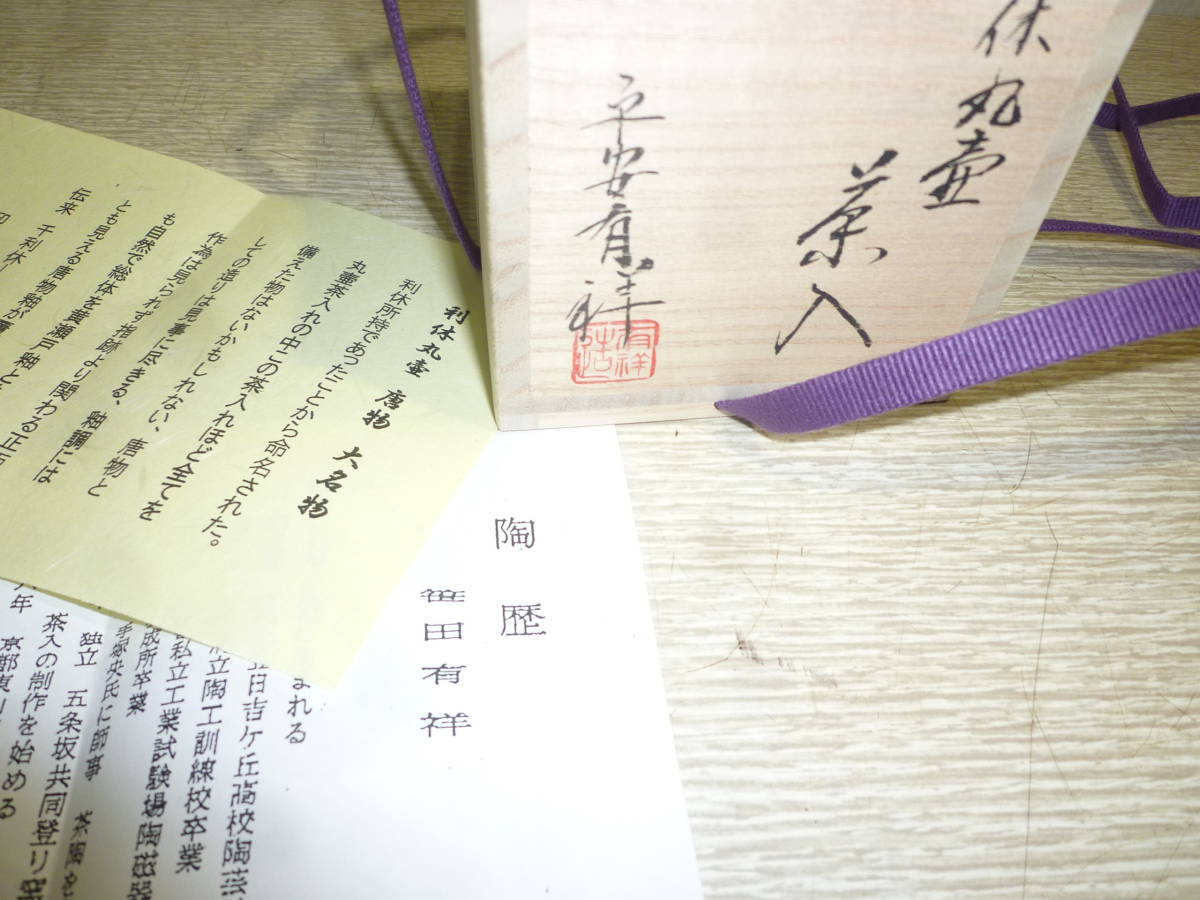 休丸壷
茶入
平安有祥
有祥造
利休丸壷 唐物 大名物
利休所持であったことから命名された。
丸壷茶入れの中この茶入れほど全てを
備えた物はないかもしれない、唐物と
しての造りは見事に尽きる、釉調には
作為は見られず指跡より関わる正面
も自然で総体を黄瀬戸釉と
とも見える唐物釉が
伝来 千利休
陶歴
笹田有祥
まれる
日吉ケ丘高校陶磁
立陶工訓練校卒業
私立工業試験場陶磁器
成所卒業
手塚央氏に師事 茶陶を
独立 五条坂共同登り窯
茶入の制作を始める
年 京都東